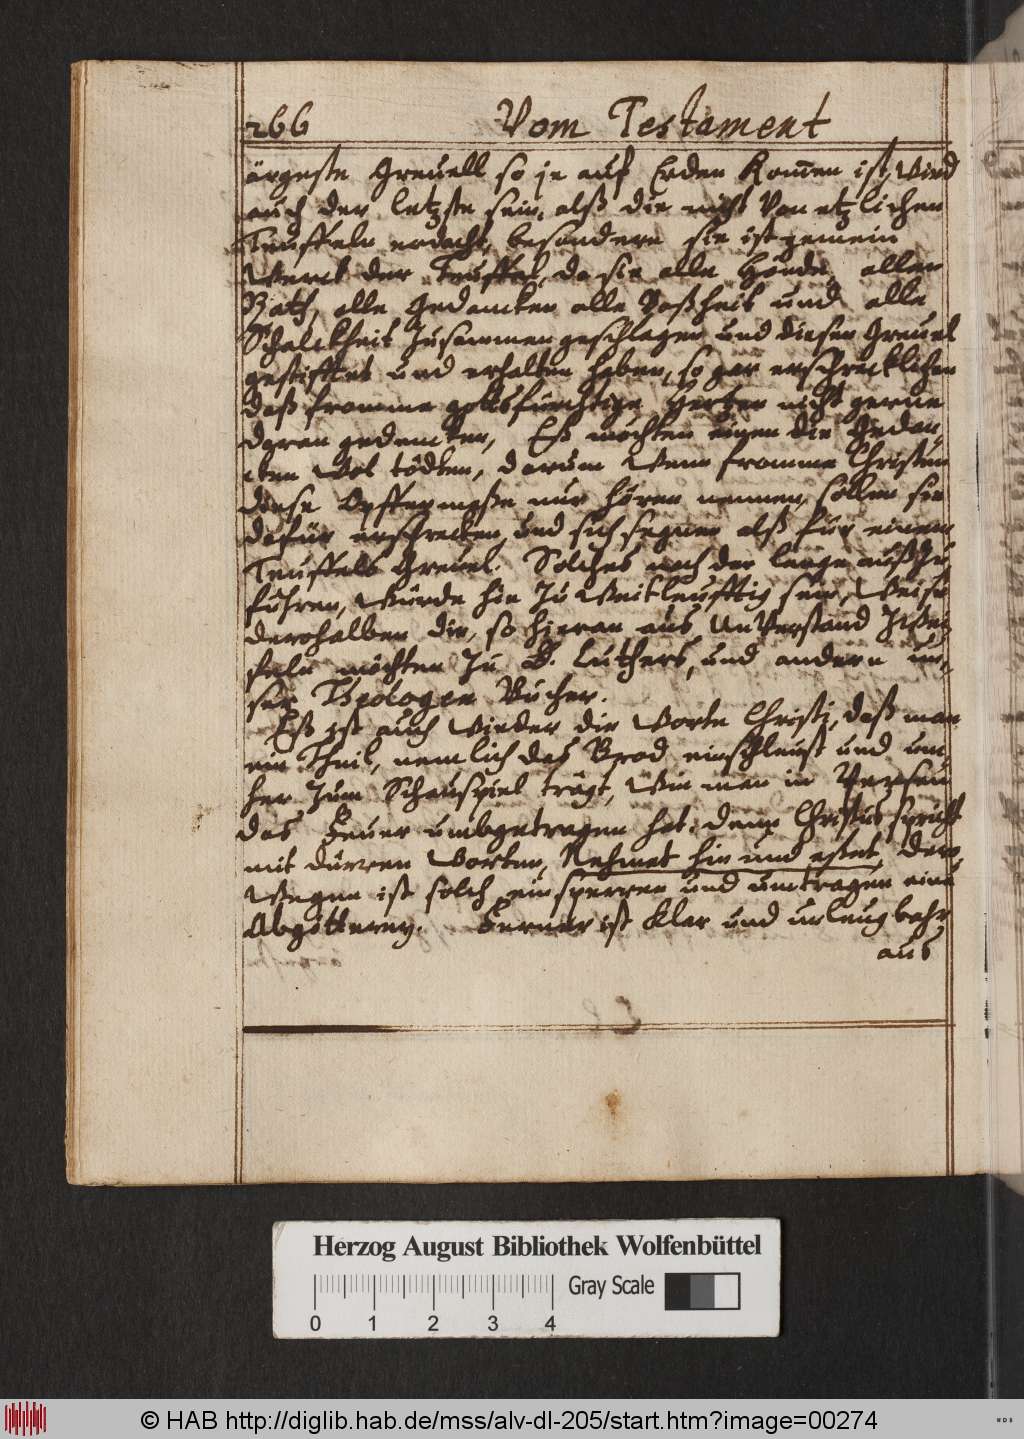 266 Vom Testament
ärgeste Greuell so je auf Erden Kom̅en ist, wird
auch der letzste sein, alß die nicht Von etzlichen
Teuffeln erdacht, besondern sie ist gemein
Werck der Teuffel, da sie alle Hände, allen
Rath, alle Gedancken alle Boßheit und alle
Schalckheit Zusammen geschlagen und diesen Greuel
gestifftet und erhalten haben, so gar erschrecklichen
daß fromme gottsfürchtige Hertzen nicht gerne
daran gedencken, Eß möchten einen die Gedan,
cken Wol tödten, darum Wenn fromme Christen
diese Opffermeße nur hören nennen, sollen sie
dafür erschrecken, und sich segnen alß für einem
Teuffels Greuel. Solches nach der lenge außzu
führen, Würde hie Zu Weitleufftig sein, Weise
derohalben die, so hieran aus UnVerstand Zweif
feln möchten Zu D. Luthers, und andern un,
ser Theologen Bücher.
Eß ist auch Wieder die Worte Christi, daß man
ein Theil, nemlich das Brod einschleust und um
her Zum Schauspiel trägt, Wie man in Persen
das Feuer umbgetragen hat: denn Christus spricht
mit dürren Worten, Nehmet hin und eßet, Dero,
Wegen ist solch einsperren und umtragen eine
Abgötterey. Ferner ist klar und unleugbahr
aus
Herzog August Bibliothek Wolfenbüttel
Gray Scale
0 1 2 3 4
© HAB http://diglib.hab.de/mss/alv-dl-205/start.htm?image=00274